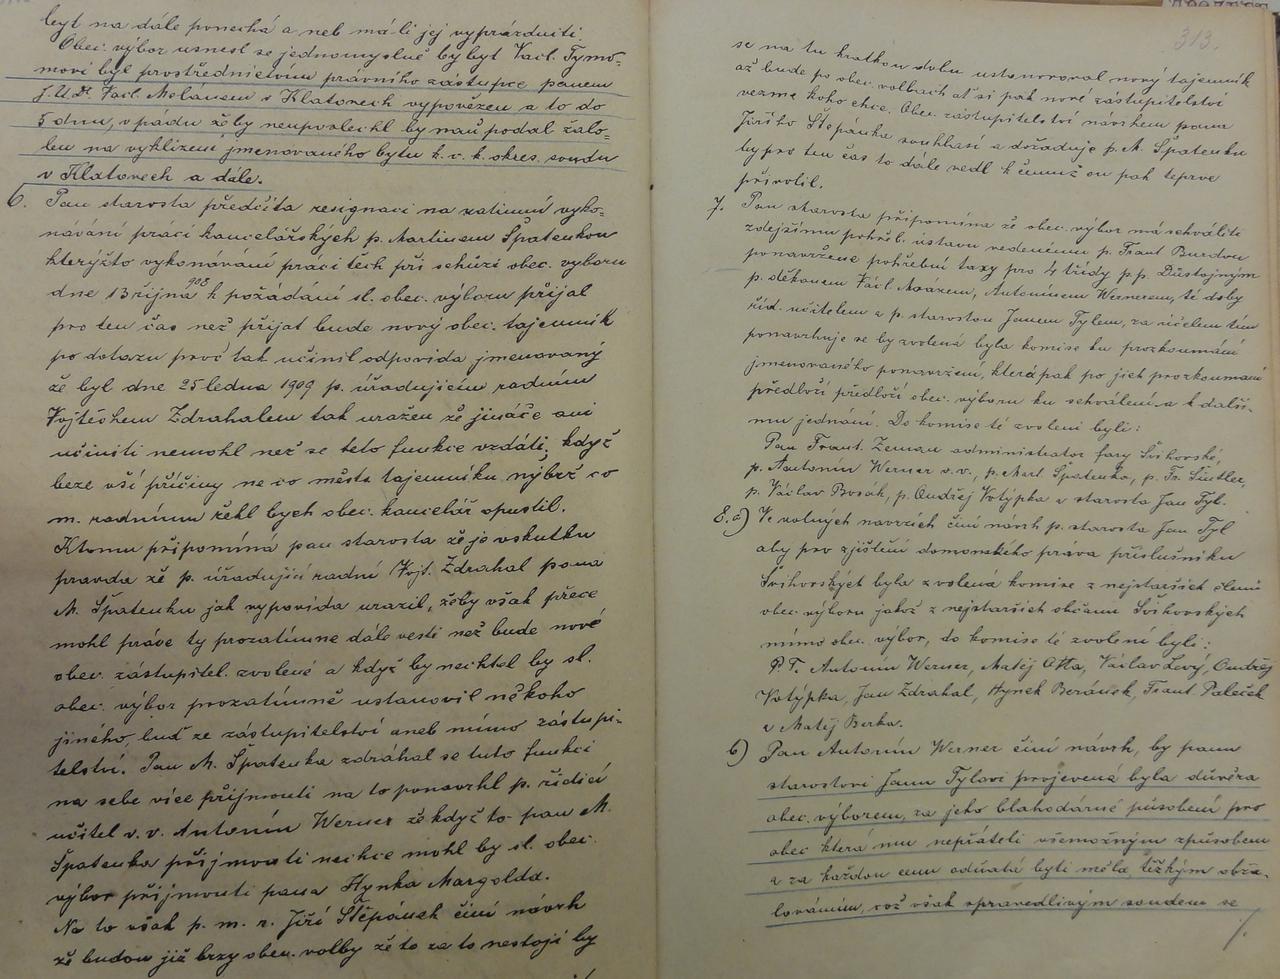 byt na dále ponechá a neb má-li jej vyprázdniti.
Obec. výbor usnesl se jednomyslně by byt Václ. Tymo-
movi byl prostřednictvím právního zástupce panem
J.U.Dr. Václ. v Klatovech vypovězen a to do
5 dnu, v pádu žeby neuposlechl by naň podal žalo-
bu na vyklizení jmenovaného bytu k. c. k. okres. soudu
v Klatovech a dále.
6. Pan starosta předčítá resignaci na zatimní vyko-
návání prací kancelářských p. Martinem Špatenkou
kterýžto vykonávání prací těch při schůzi obec. výboru
dne 13 října 908 k požádání sl. obec. výboru přijal
pro ten čas než přijat bude nový obec. tajemník
po dotazu proč tak učinil odpovídá jmenovaný
že byl dne 25 ledna 1909 p. úřadujícím radním
Vojtěchem Zdrahalem tak uražen že jináče ani
učiniti nemohl než se této funkce vzdáti, když
beze vší příčiny ne co města tajemníku nýbrž co
m. radnímu řekl bych obec. kancelář opustil.
Ktomu připomíná pan starosta že je vskutku
pravda že p. úřadující radní Vojt. Zdrahal pana
M. Špatenku jak vypovídá urazil, žeby však přece
mohl práce ty prozatímne dále vesti než bude nové
obec. zástupitel. zvolené a když by nechtěl by sl.
obec. výbor prozatímně ustanovil někoho
jiného, buď ze zástupitelství aneb mimo zástupi-
telství. Pan M. Špatenka zdráhal se tuto funkci
na sebe více přijmouti na to ponavrhl p. řídící
učitel v. v. Antonín Werner že když to pan M.
Špatenka přijmouti nechce mohl by sl. obec.
výbor přijmouti pana Hynka Margolda.
Na to však p. m. r. Jiří Štěpánek činí návrh
že budou již brzy obec. volby že to za to nestojí by
313.
se na tu kratkou dobu ustanovoval nový tajemník
až bude po obec. volbach ať si pak nové zástupitelství
vezme koho chce. Obec. zástupitelství návrhem pana
Jiřího Štěpánka souhlasí a dožaduje p. M. Špatenku
by pro ten čas to dále vedl k čemuž on pak teprve
přivolil.
7. Pan starosta připomíná že obec. výbor má schváliti
zdejšímu pohřeb. ústavu vedenému p. Frant. Burdou
ponavržene pohřební taxy pro 4 třídy p.p. Důstojným
p. děkanem Václ. Mrazem, Antonínem Wernerem, té doby
říd. učitelem a p. starostou Janem Tylem, za účelem tím
ponavrhuje se by zvolená byla komise ku prozkoumání
jmenovaného ponavržení, která pak po jich prozkoumání
předloží předloží obec. výboru ku schválení a k další-
mu jednání. Do komise té zvoleni byli:
Pan Frant. Zeman administrator fary Švihovské,
p. Antonín Werner v.v., p. Mart. Špatenka, p. Fr. Šindler,
p. Václav Bosák, p. Ondřej Votýpka a starosta Jan Tyl.
8. a) Ve volných navrzích činí návrh p. starosta Jan Tyl
aby pro zjištění domovského práva příslušníku
Švihovských byla zvolená komise z nejstarších členů
obec. výboru jakož z nejstarších občanu Švihovských
mimo obec. výbor, do komise té zvoleni byli:
P. T. Antonín Werner, Matěj Otta, Václav Levý, Ondřej
Votýpka, Jan Zdrahal, Hynek Beránek, Frant. Paleček
a Matěj Berka.
b) Pan Antonín Werner činí návrh, by panu
starostovi Janu Tylovi projevená byla důvěra
obec. výborem, za jeho blahodárné působení pro
obec která mu nepřáteli všemožným způsobem
a za každou cenu odňatá byti měla, těžkým obža-
lováním, což však spravedlivým soudem se